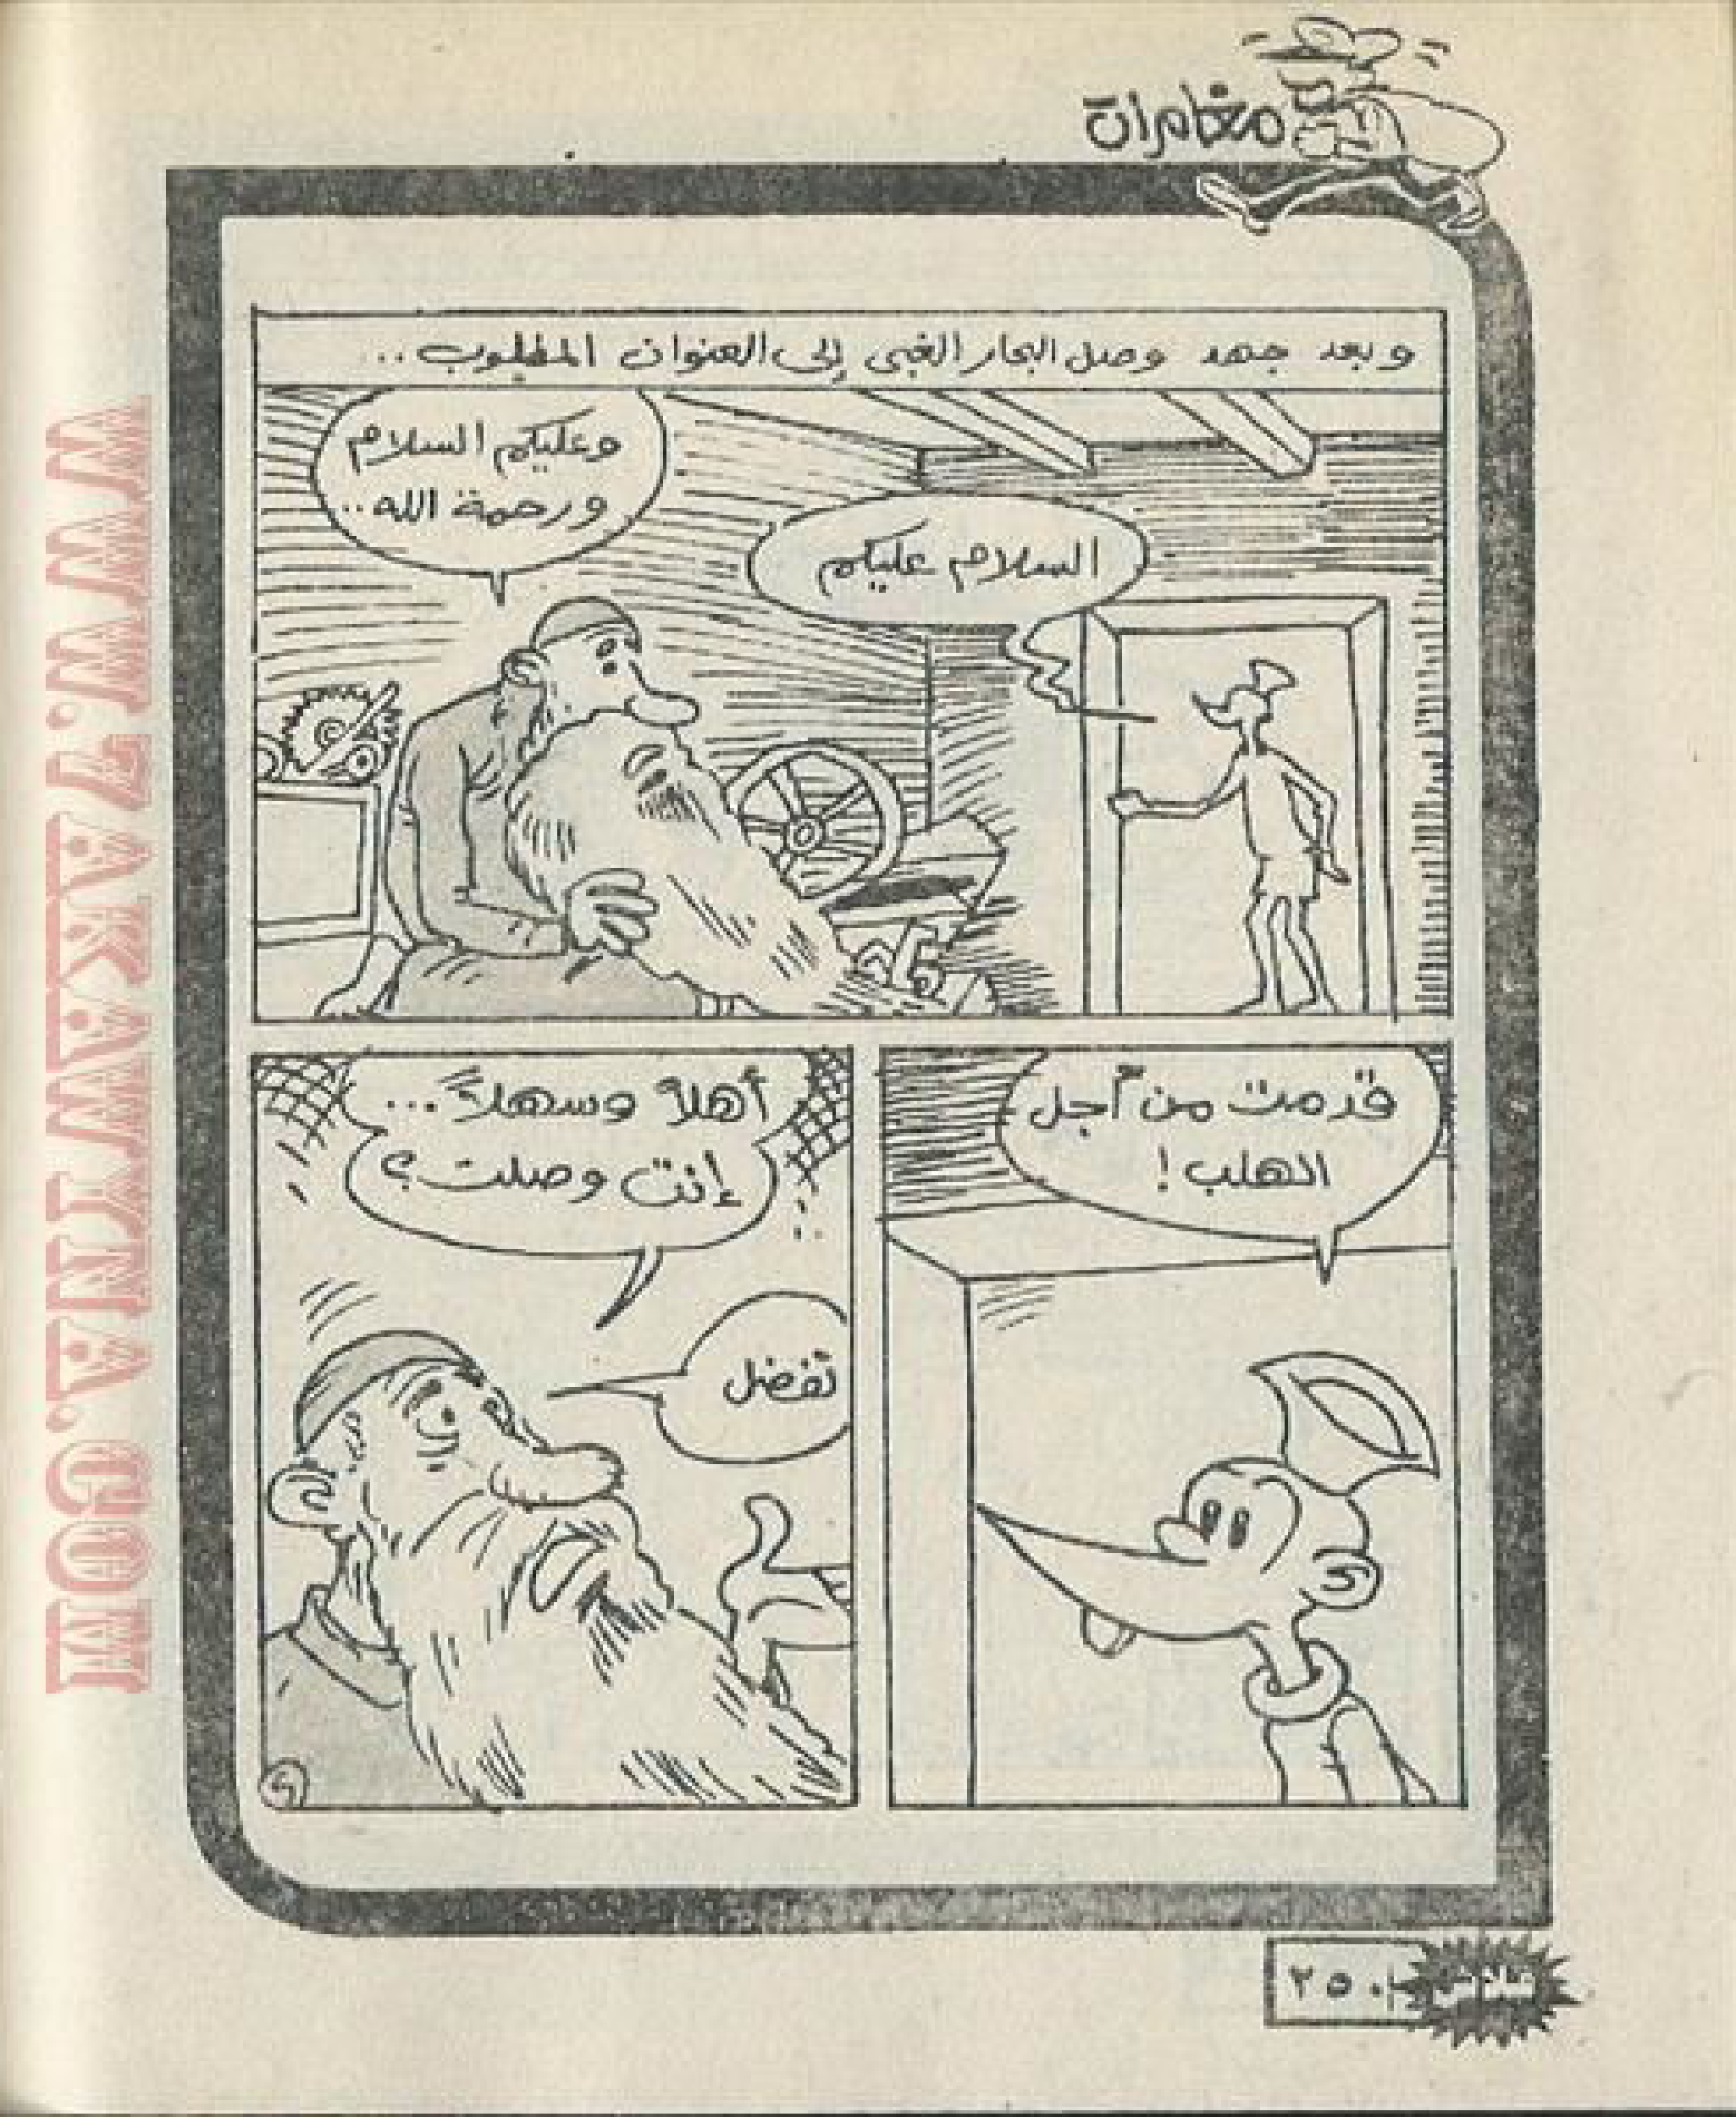 مغامرات
وبعد جهد وصل البحار الغبى إلى العنوان المطلوب ..
السلام عليكم
وعليكم السلام
ورحمة الله ..
قدمت من أجل
الهلب !
أهلاً وسهلاً ...
إنت وصلت ؟
تفضل
٩
فلاش
٢٥٠
WWW.TAKAWITNA.COM